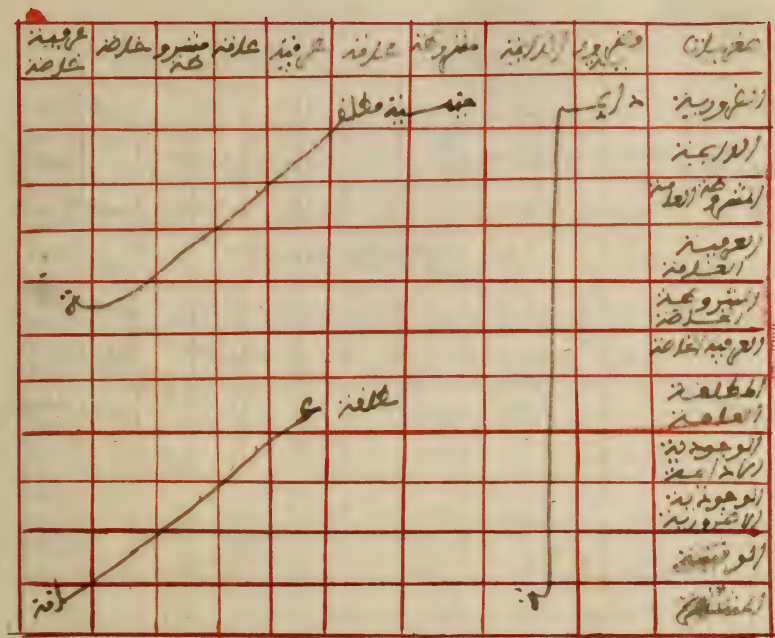 ضرورية دائمة مشروطة عامة عرفية عامة مشروطة خاصة عرفية خاصة
الضرورية دائمة حينية مطلقة
الدائمة
المشروطة العامة
العرفية
العامة
المشروطة
الخاصة
العرفية الخاصة
المطلقة
العامة
مطلقة عامة
الوجودية
اللادائمة
الوجودية
اللاضرورية
الوقتية